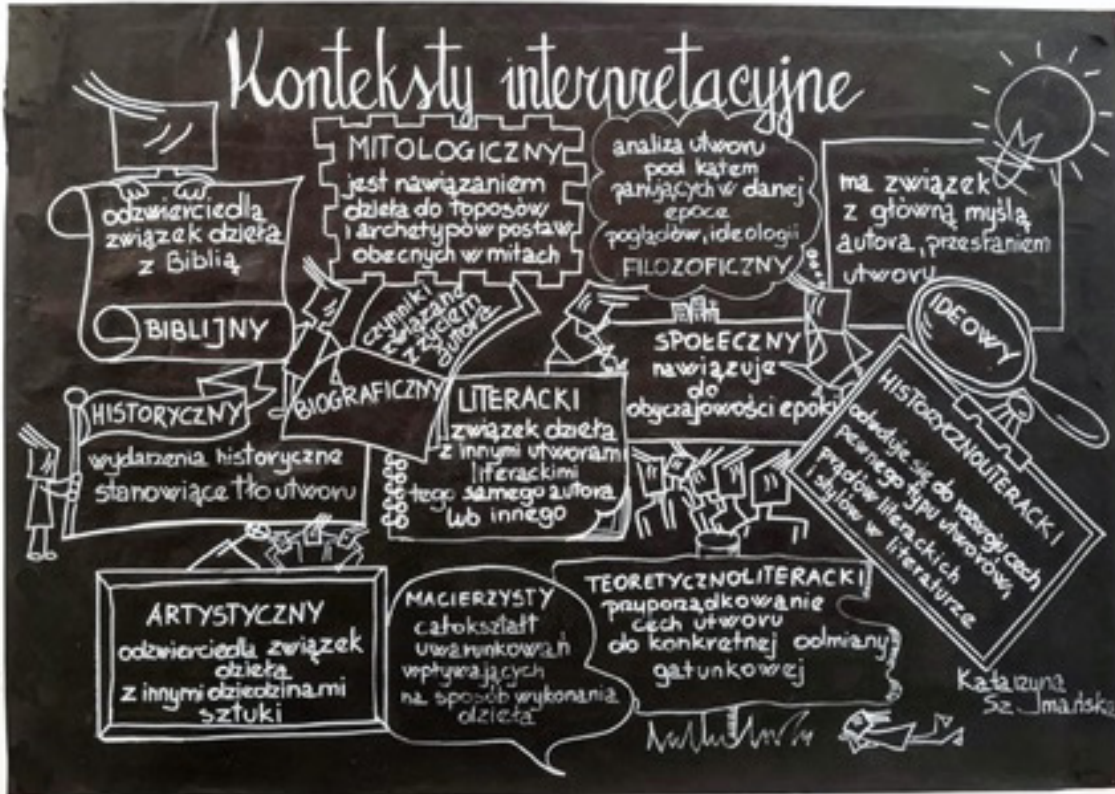 Konteksty interpretacyjne
odzwierciedla
związek dzieła
z Biblią
BIBLIJNY
MITOLOGICZNY
jest nawiązaniem
dzieła do toposów
i archetypów postaw
obecnych w mitach
analiza utworu
pod kątem
panujących w danej
epoce
poglądów, ideologii
FILOZOFICZNY
ma związek
z główną myślą
autora, przesłaniem
utworu
IDEOWY
HISTORYCZNY
wydarzenia historyczne
stanowiące tło utworu
czynniki
związane
z życiem
autora
BIOGRAFICZNY
LITERACKI
związek dzieła
z innymi utworami
literackimi
tego samego autora
lub innego
SPOŁECZNY
nawiązuje
do
obyczajowości epoki
HISTORYCZNOLITERACKI
odwołuje się do rozwoju cech
pewnego typu utworów,
prądów literackich
i stylów w literaturze
ARTYSTYCZNY
odzwierciedla związek
dzieła
z innymi dziedzinami
sztuki
MACIERZYSTY
całokształt
uwarunkowań
wpływających
na sposób wykonania
dzieła
TEORETYCZNOLITERACKI
przyporządkowanie
cech utworu
do konkretnej odmiany
gatunkowej
Katarzyna
Szymańska